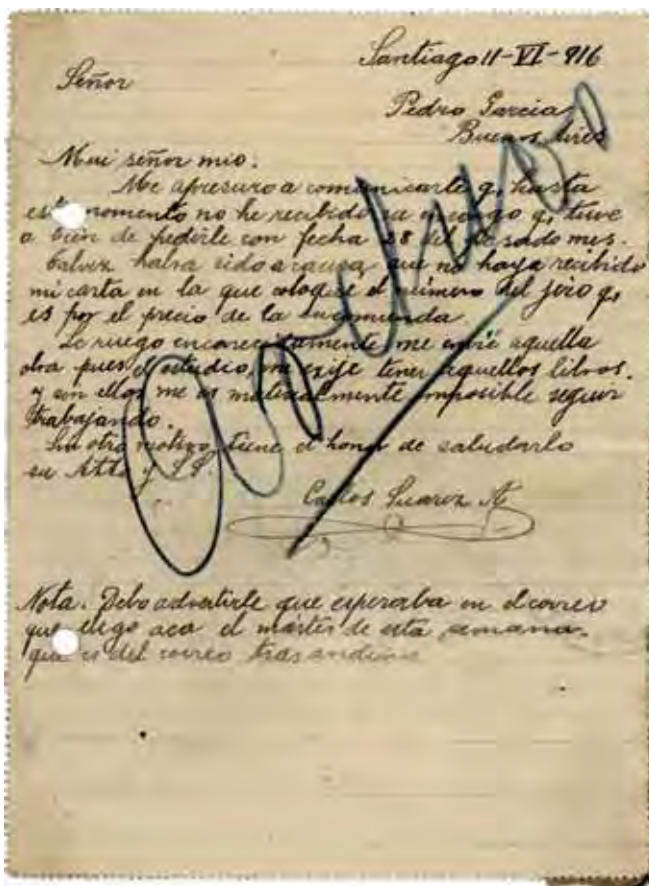 Santiago 11-VI-916
Señor
Pedro Garcia
Buenos Aires
Mui señor mio.
Me apresuro a comunicarle q, hasta
este momento no he recibido su encargo q, tuve
a bien de pedirle con fecha 28 del pasado mes.
Talvez habra sido a causa, que no haya recibido
mi carta en la que coloqué el número del jiro q,
es por el precio de la encomienda.
Le ruego encarecidamente me envié aquella
obra pues el estudio, me exije tener aquellos libros.
y sin ellos me es materialmente imposible seguir
trabajando.
Sin otro motivo, tiene el honor de saludarlo
su Atto y S.S.
Carlos Suarez A
Nota. Debo advertirle que esperaba en el correo
que llego aca el martes de esta semana.
que es del correo trasandino